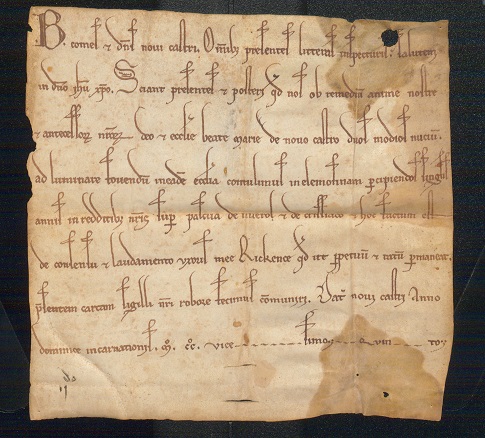 B. comes et dn̄s novi castri. Om̄ibȝ presentes litteras inspecturis. salutem
in dn̄o ihū xp̄o. Sciant presentes et posteri qd̄ nos ob remediū anime nostre
et antecessoꝝ nr̄oꝝ deo et eccl'ie beate marie de novo castro duos modios nucum.
ad luminare fovendū in eadē eccl'ia contulimus in elemosinam ꝑcipiendos singul'
annis in redditibȝ nr̄is suꝑ pascua de et de et hoc factum est
de consensu et laudamento uxoris mee Rickence qd̄ ut ꝑpetuū et ratū ꝑmaneat.
p̄sentem cartam sigilli nr̄i robore fecimus cōmuniri. Dat' novi castri Anno
dominice incarnationis. M. CC. vice simo quin to